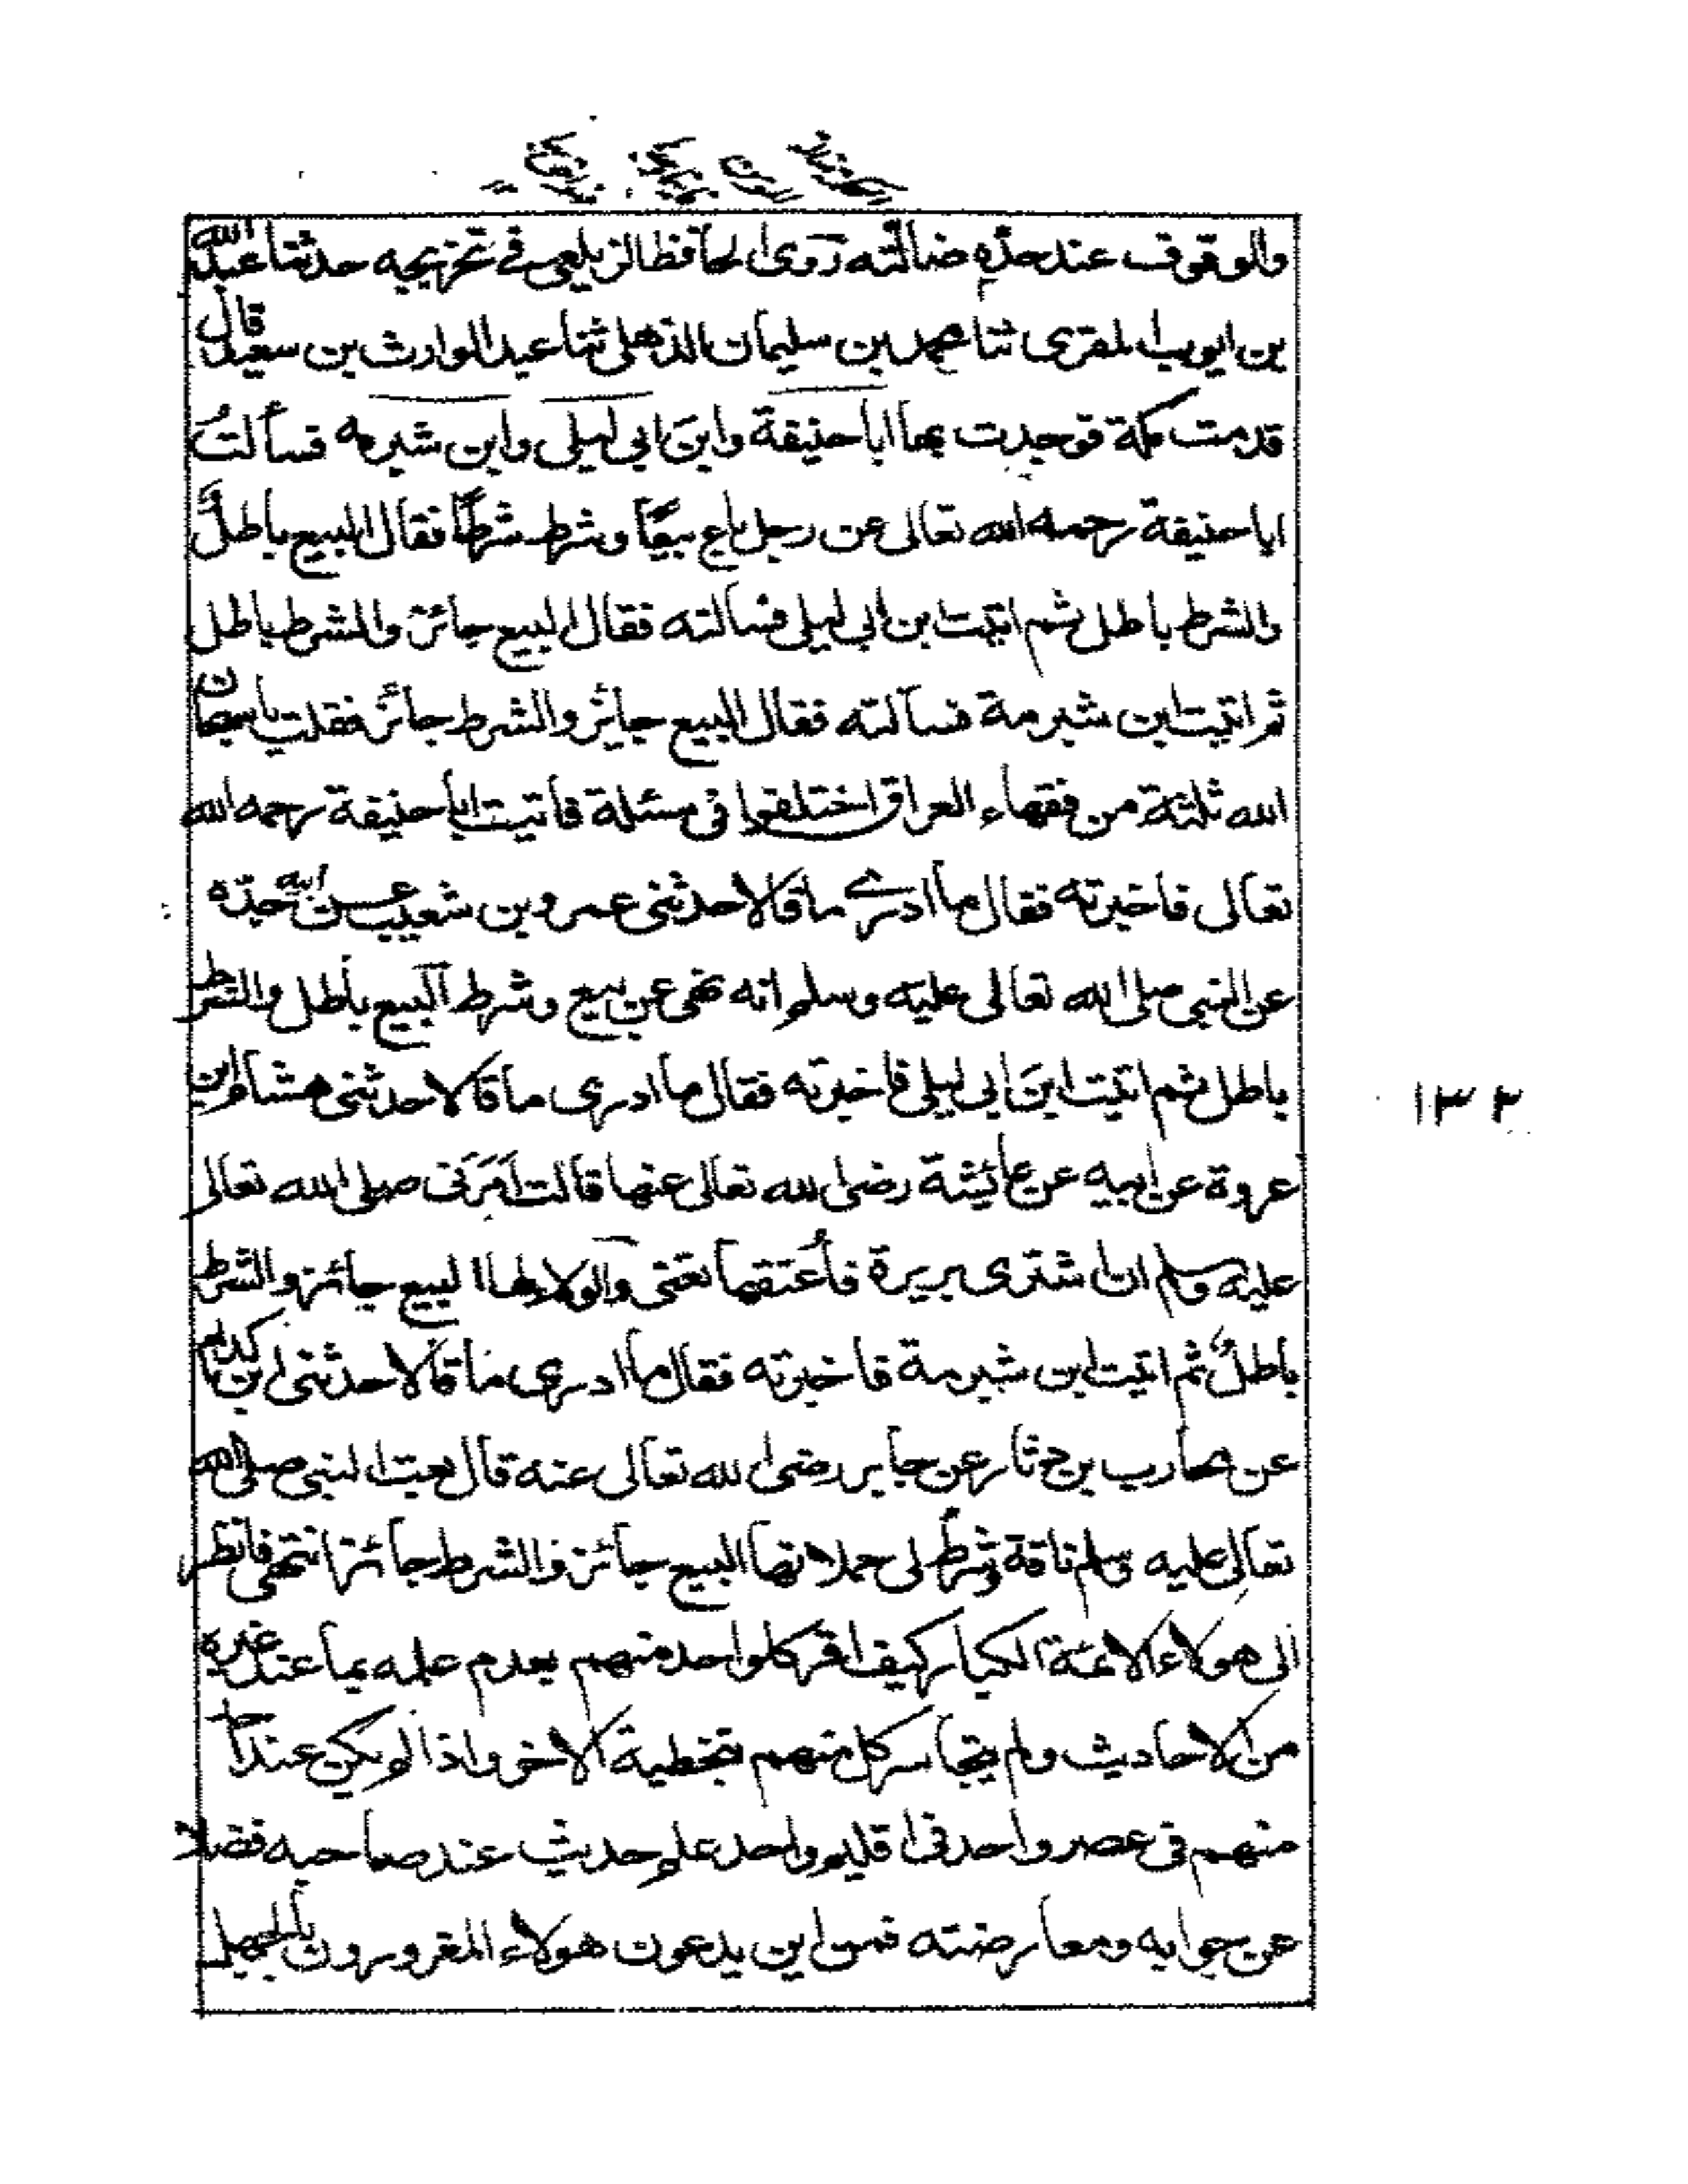 والوقوف عند حدّه ضالّته رَوَى الحافظ الزيلعي في تخريجه حدثنا عبد الله
بن ايوب المقرى ثنا محمد بن سليمان الذهلى ثنا عبد الوارث بن سعيد قال
قدمت مكة فوجدت بها ابا حنيفة وابنَ ابي ليلى وابن شبرمه فسألتُ
ابا حنيفة رحمه الله تعالى عن رجل باع بيعًا وشرط شرطًا فقال البيع باطلٌ
والشرط باطل ثم اتيت ابن ابي ليلى فسألته فقال البيع جائز والشرط باطل
ثم اتيت ابن شبرمة فسألته فقال البيع جايز والشرط جائز فقلت يا سبحان
الله ثلثة من فقهاء العراق اختلفوا فى مسئلة فاتيت ابا حنيفة رحمه الله
تعالى فاخبرته فقال ما ادرے ما قالا حدثنى عمرو بن شعيب عن ابيه عن جدّه
عن النبى صلى الله تعالى عليه وسلم انه نهى عن بيع وشرط البيع باطل والشرط
باطل ثم اتيت ابنَ ابى ليلى فاخبرته فقال ما ادرى ما قالا حدثنى هشام ابن
عروة عن ابيه عن عائيشة رضى الله تعالى عنها قالت اَمَرَنى صلى الله تعالى
عليه وسلم ان اشترى بريرة فأُعتقها يعنى والولا لها البيع جائز والشرط
باطلٌ ثم اتيت ابن شبرمة فاخبرته فقال ما ادرى ما قالا حدثنى ابن كدام
عن محارب بن دثار عن جابر رضى الله تعالى عنه قال بعت النبى صلى الله
تعالى عليه وسلم ناقة وشرط لى حملانها البيع جائز والشرط جائز انتهى فانظر
الى هولاء الائمة الكبار كيف اقر كل واحد منهم بعدم علمه بما عند غيره
من الاحاديث ولم يتجاسر كل منهم بتخطية الاخر واذا لم يكن عند احد
منهم فى عصر واحد فى اقليم واحد علم حديث عند صاحبه فضلا
عن جوابه ومعارضته فمن اين يدعون هولاء المغرورون بالجهل
١٣٣